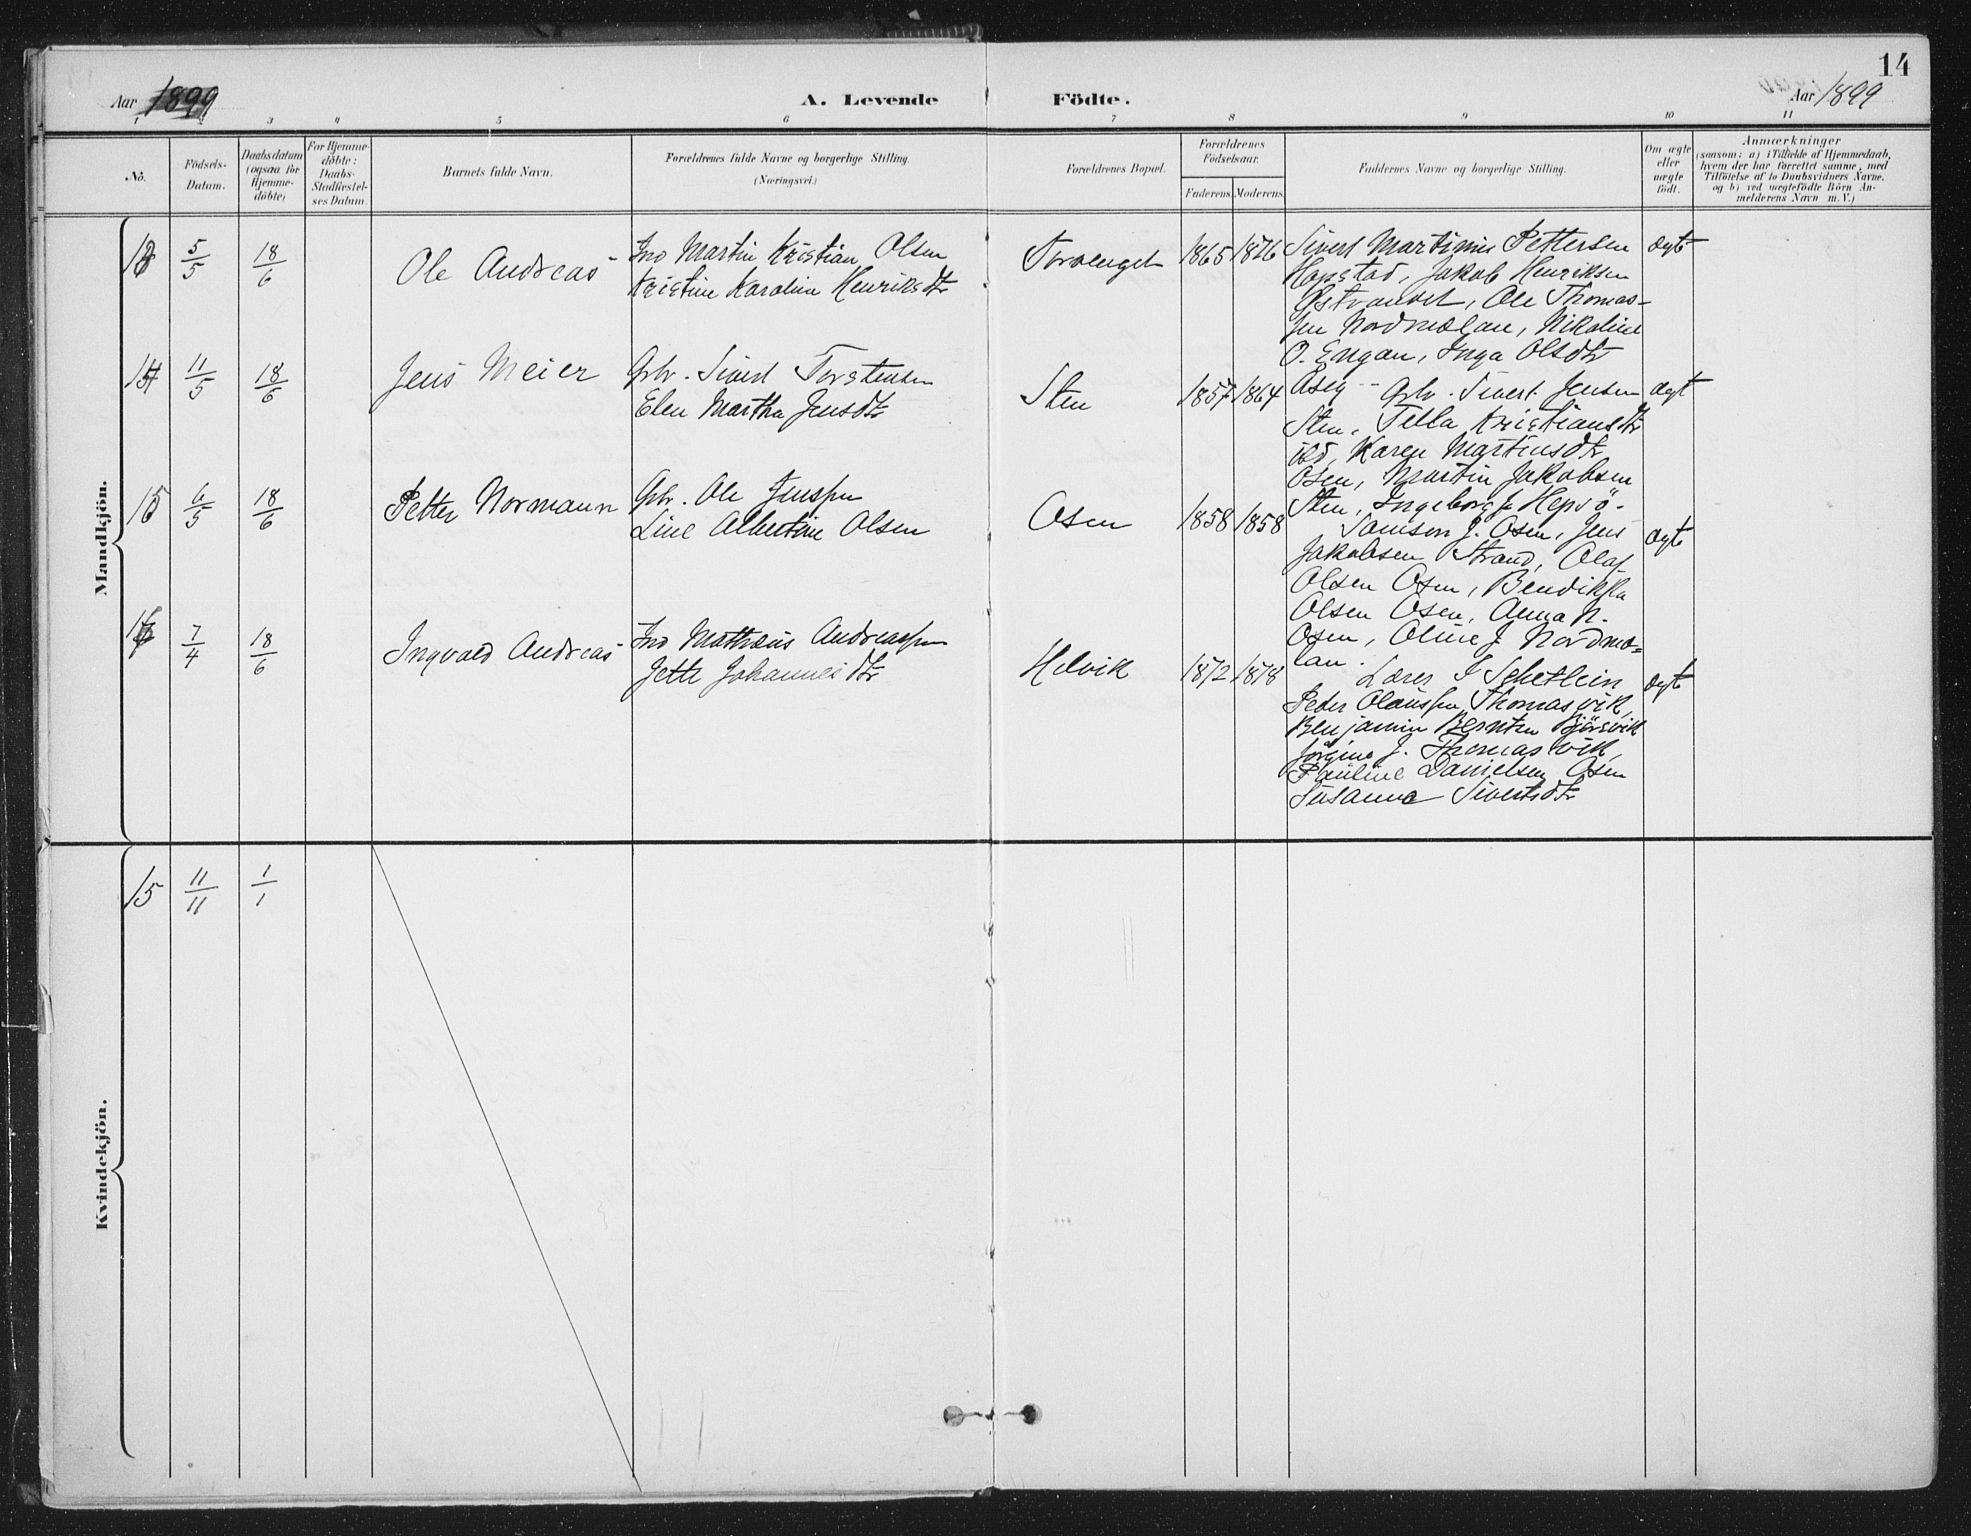 14
Aar 1899
A. Levende Födte.
Aar 1899
1 2 3 4 5 6 7 8 9 10 11
No.
Födsels-
Datum.
Daabsdatum
(ogsaa for
Hjemme-
döbte)
For Hjemme-
döbte:
Daabs-
Stadfæstel-
ses Datum.
Barnets fulde Navn.
Forældrenes fulde Navne og borgerlige Stilling.
(Næringsvei.)
Forældrenes Bopæl.
Forældrenes
Födselsaar.
Faderens. Moderens.
Faddernes Navne og borgerlige Stilling.
Om ægte
eller
uægte
födt.
Anmærkninger
(saasom: a) i Tilfælde af Hjemmedaab,
hvem der har forrettet samme, med
Tilföielse af to Daabsvidners Navne.
og b) ved uægtefödte Börn An-
melderens Navn m. V.)
Mandkjön.
13 5/5 18/6 Ole Andreas
Ind Martin Kristian Olsen
Kristine Karoline Henriksdtr
1865 1876
Sivert Martinus Pettersen
Hopstad, Jakob Henriksen
Østvandet, Ole Thomas-
sen Nordmelan, Nikoline
O. Engan, Inga Olsdtr
ægte
14 11/5 18/6 Jens Meier
Gbr. Sivert Torstensen
Elen Martha Jensdtr
Sten 1857 1864
Aseg - Gbr. Sivert Jensen
Sten, Tella Kristiansdtr
ibd, Karen Martinsdtr
Osen, Martin Jakobsen
Sten, Ingeborg J. Hepsö.
ægt
15 6/5 18/6 Petter Normann
Gbr. Ole Jenssen
Line Albertine Olsen
Osen 1858 1858
Samson J. Osen, Jens
Jakobsen Strand, Olaf
Olsen Osen, Bendikka
Olsen Osen, Anna N.
Osen, Oline J. Nordme=
lan.
ægte
16 7/4 18/6 Ingvald Andreas
Ind Mathæus Andreassen
Jette Johannesdtr
Helvik 1872 1878
Lærer I Schetlein
Peder Olaussen Thomasvik,
Benjamin Berntsen Bjørsvik
Jørgine J. Thomasvik,
Pauline Danielsen Osen
Susanna Sivertsdtr
ægte
Kvindekjön.
15 11/11 1/1